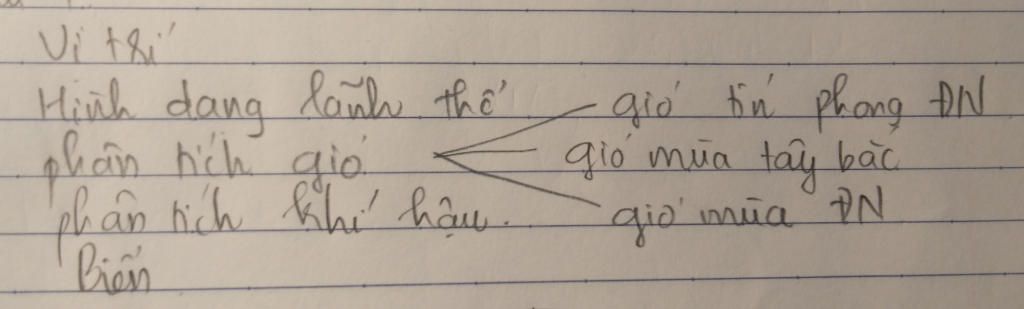 Vị trí
Hình dạng lãnh thổ
phân tích gió
phân tích khí hậu.
Biển
gió tín phong ĐN
gió mùa tây bắc
gió mùa ĐN